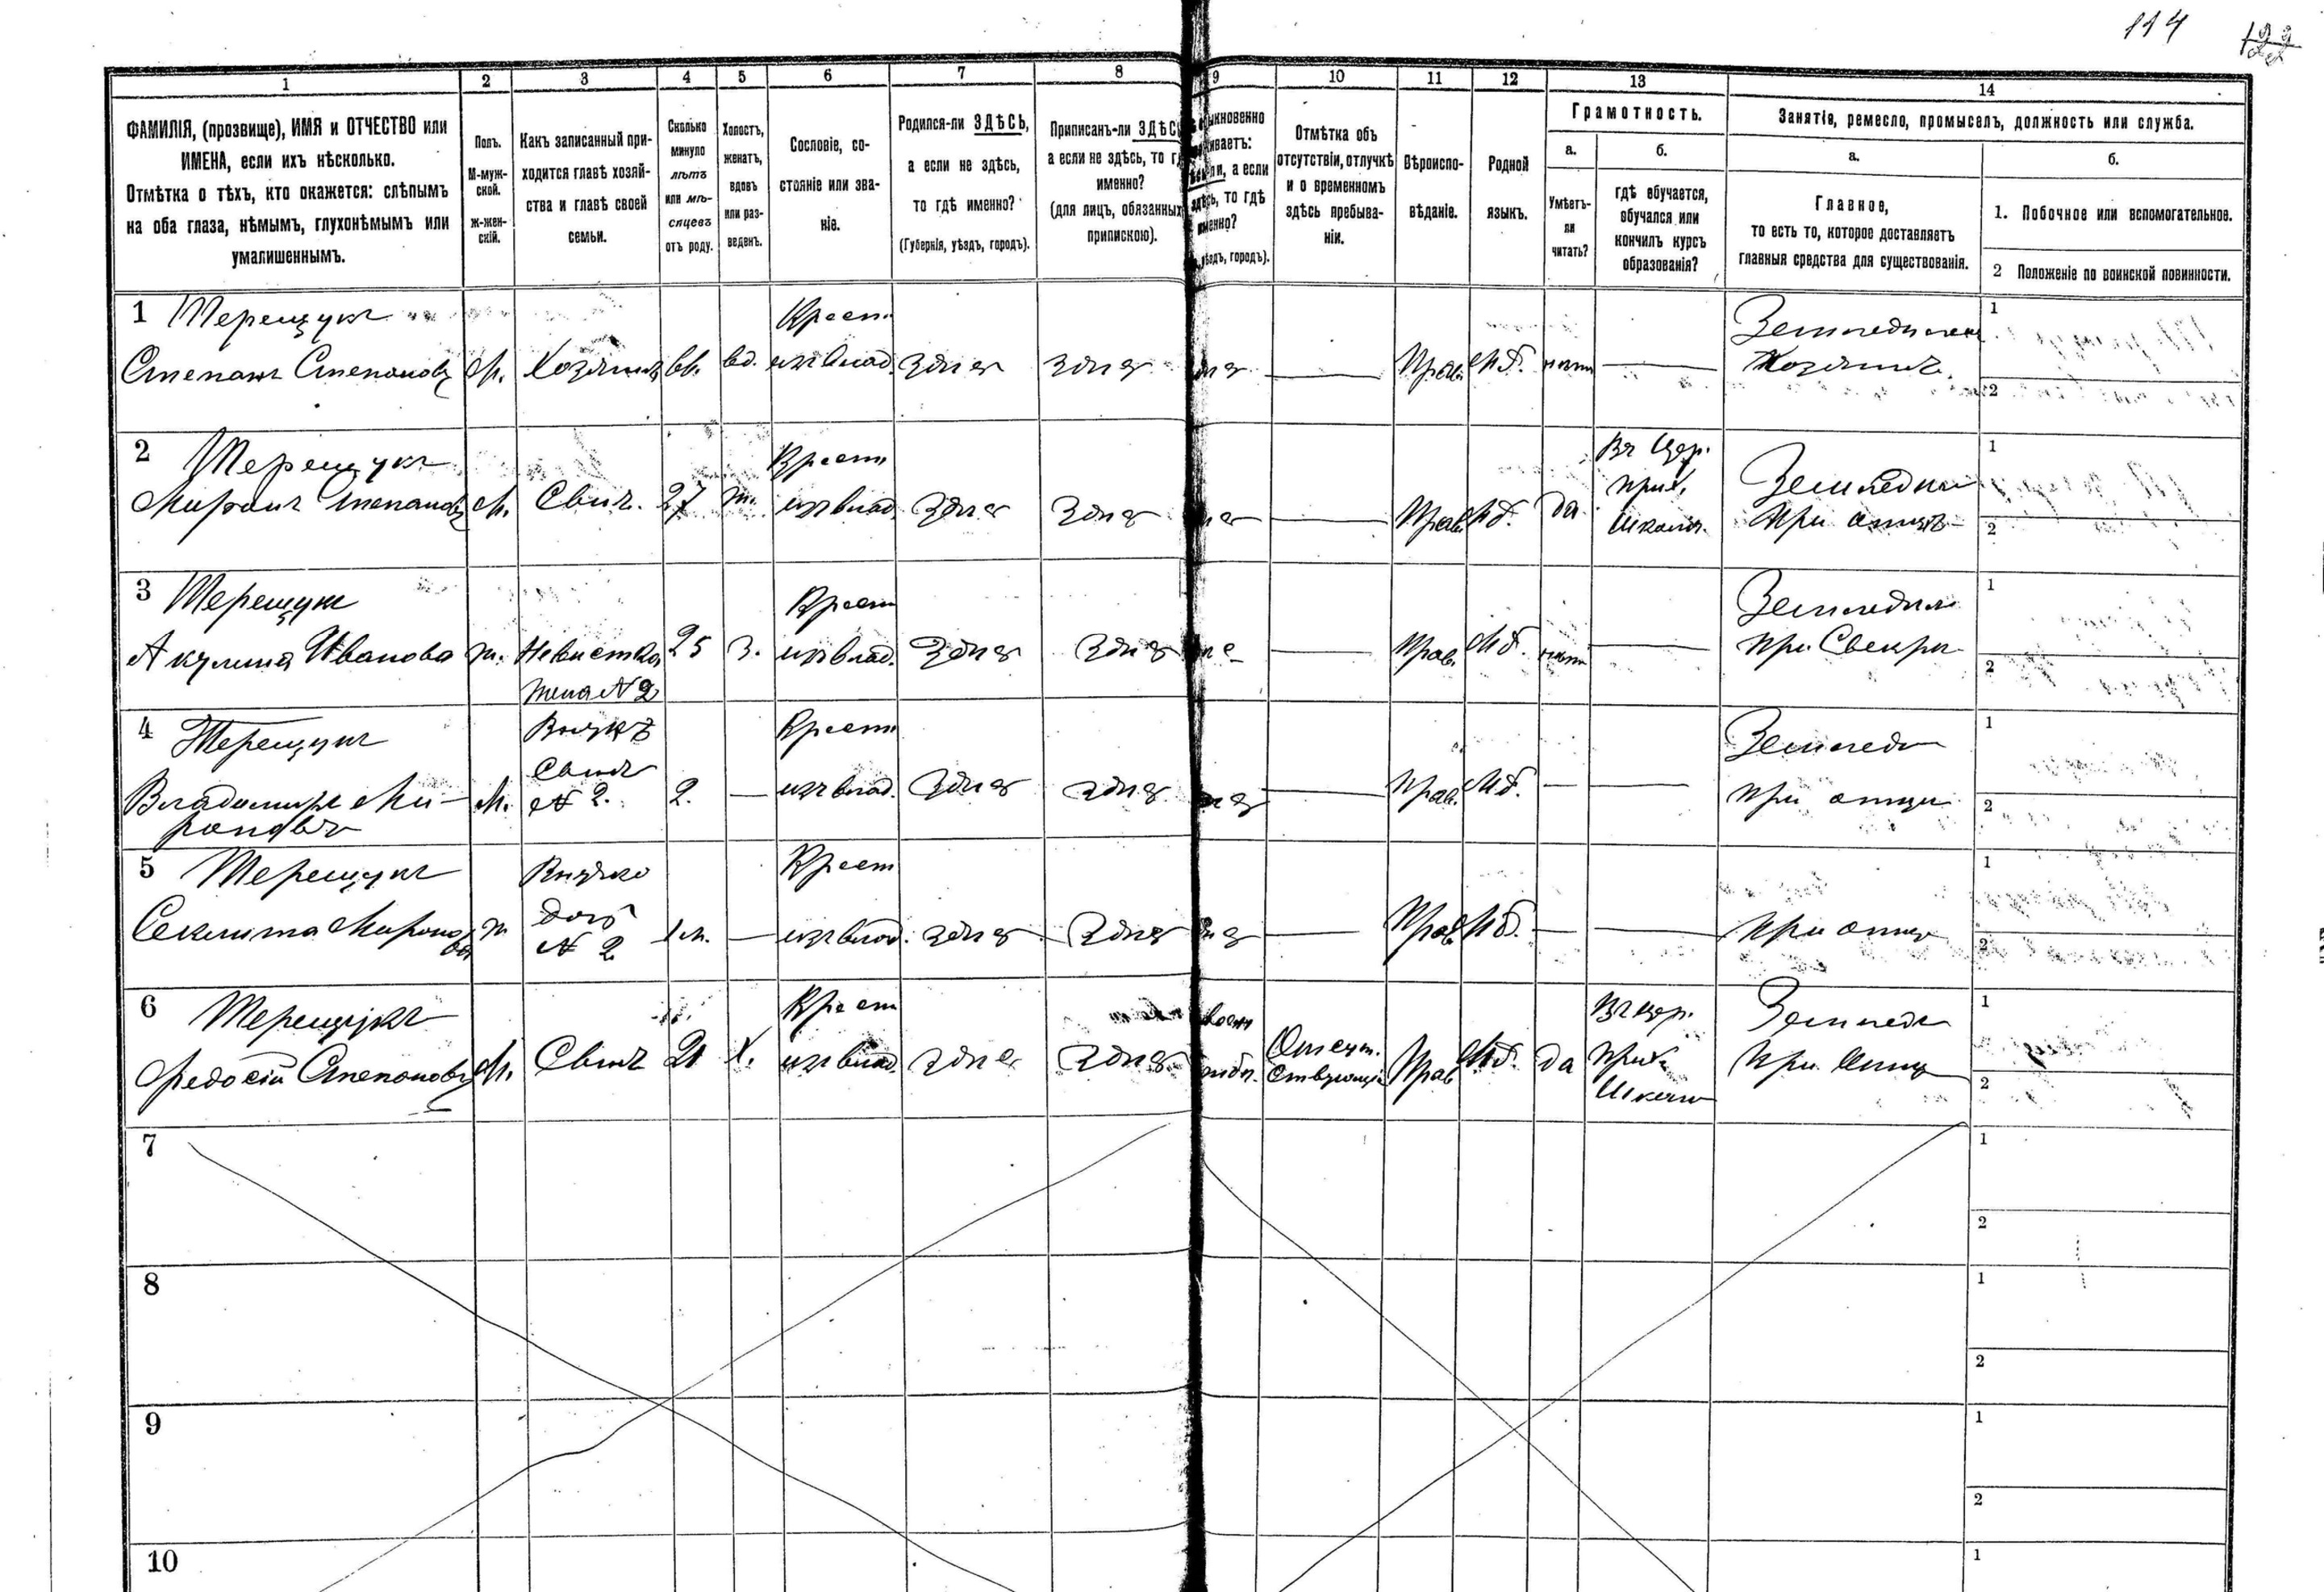 114
122
1 2 3 4 5 6 7 8 9 10 11 12 13 14
ФАМИЛІЯ, (прозвище), ИМЯ и ОТЧЕСТВО или
ИМЕНА, если ихъ нѣсколько.
Отмѣтка о тѣхъ, кто окажется: слѣпымъ
на оба глаза, нѣмымъ, глухонѣмымъ или
умалишеннымъ.
Полъ.
М-муж-
ской.
ж-жен-
скій.
Какъ записанный при-
ходится главѣ хозяй-
ства и главѣ своей
семьи.
Сколько
минуло
лѣтъ
или мѣ-
сяцевъ
отъ роду.
Холостъ,
женатъ,
вдовъ
или раз-
веденъ.
Сословіе, со-
стояніе или зва-
ніе.
Родился-ли ЗДѢСЬ,
а если не здѣсь,
то гдѣ именно?
(Губернія, уѣздъ, городъ).
Приписанъ-ли ЗДѢСЬ
а если не здѣсь, то г
именно?
(для лицъ, обязанныхъ
припискою).
ыкновенно
иваетъ:
ли, а если
здѣсь, то гдѣ
именно?
уѣздъ, городъ).
Отмѣтка объ
отсутствіи, отлучкѣ
и о временномъ
здѣсь пребыва-
ніи.
Вѣроиспо-
вѣданіе.
Родной
языкъ.
Грамотность.
а.
Умѣетъ-
ли
читать?
б.
гдѣ обучается,
обучался или
кончилъ курсъ
образованія?
Занятіе, ремесло, промыселъ, должность или служба.
а.
Главное,
то есть то, которое доставляетъ
главныя средства для существованія.
б.
1. Побочное или вспомогательное.
2 Положеніе по воинской повинности.
1 Терещукъ Крест. Земледѣлецъ 1
Степанъ Степановъ М. Хозяинъ вд. изъ влад. здѣсь здѣсь — Прав. Мб. нѣтъ — Хозяинъ. 2
2 Терещукъ Крест Въ Цер. 1
Миронъ Степановъ М. Сынъ. 27 ж. изъ влад. здѣсь здѣсь — Прав. Мб. да прих. Земледѣл
Школѣ. при отцѣ 2
3 Терещукъ Крест Земледѣл 1
Акулина Иванова ж. Невистка 25 з. изъ влад. здѣсь здѣсь — Прав. Мб. нѣтъ — при Свекрѣ 2
жена № 2
4 Терещукъ Внукъ Крест Земледѣ 1
Сынъ
Владимиръ Ми- М. № 2. 2. — изъ влад. здѣсь здѣсь — Прав. Мб. — — при отцѣ 2
роновъ
5 Терещукъ Внучка Крест 1
дочь
Секлита Мироно ж № 2 1 м. — изъ влад. здѣсь здѣсь — Прав Мб. — — при отцѣ 2
ва
6 Терещукъ Крест Въ цер. Земледѣ 1
Федосій Степановъ М. Сынъ 21 Х. изъ влад. здѣсь здѣсь Отсут. Прав Мб. да прих. при Отцѣ 2
ствующій Школѣ
7 1
2
8 1
2
9 1
2
10 1